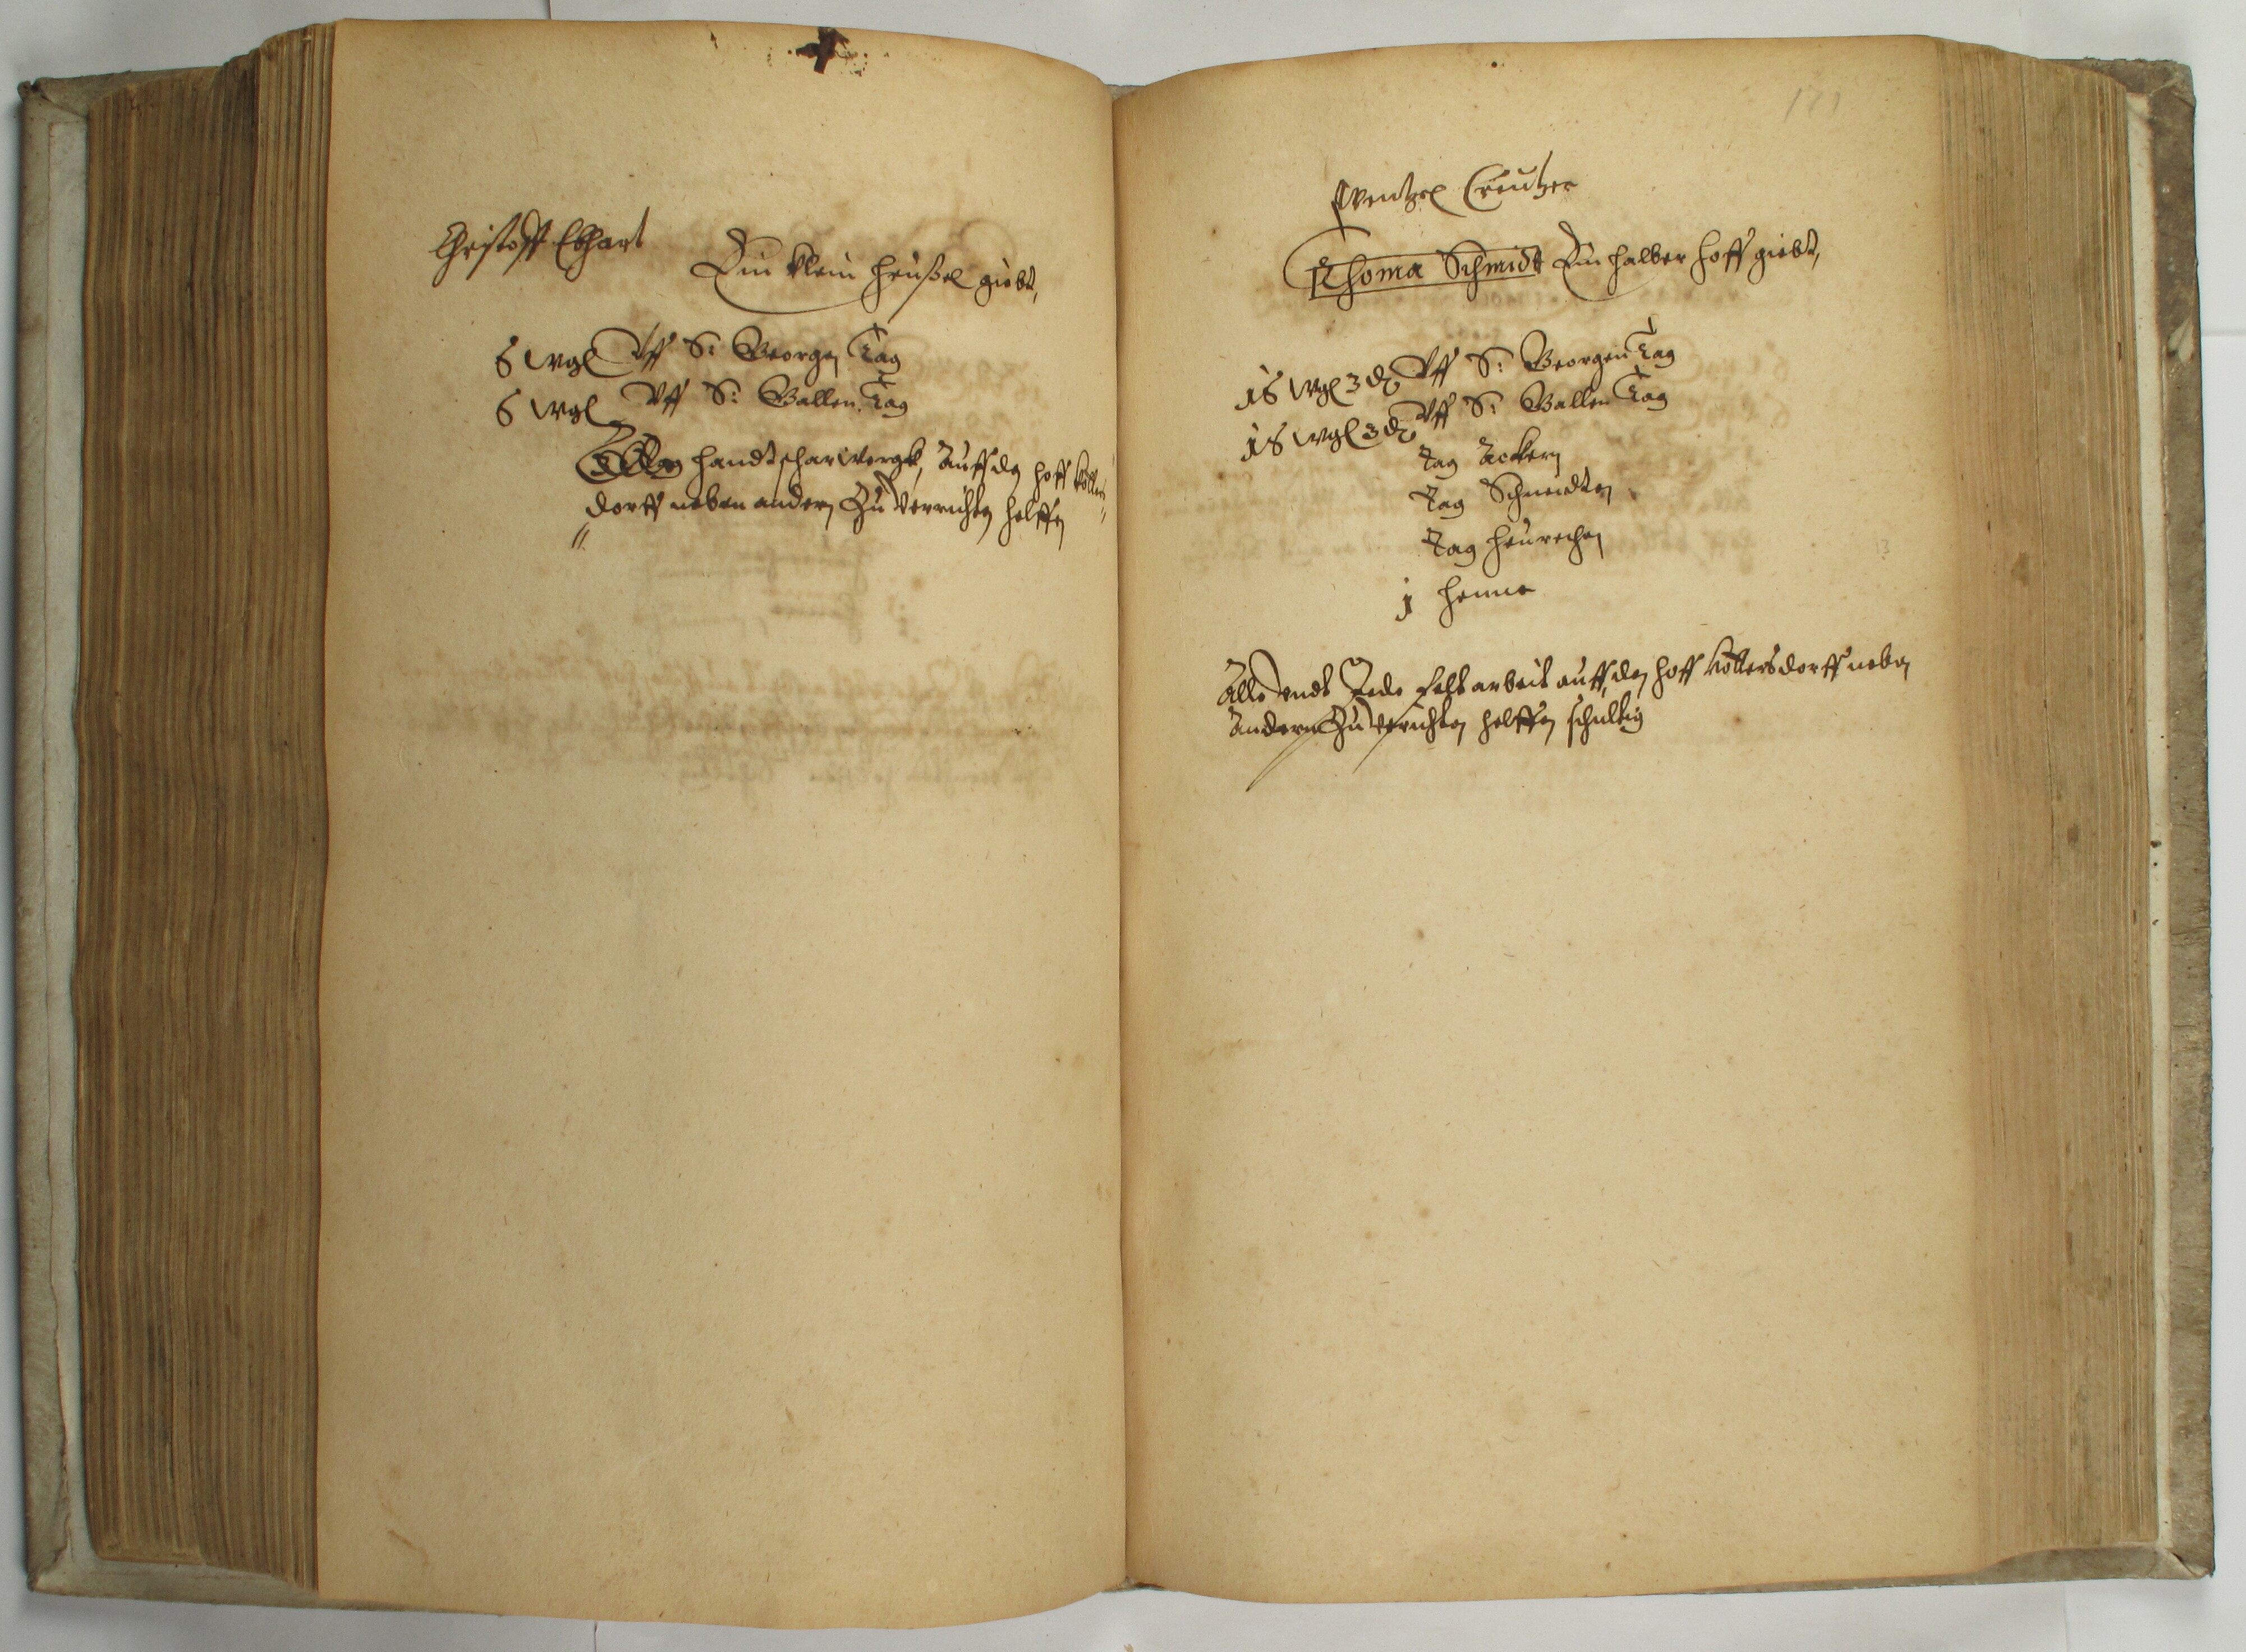 Christoff Ebhart
Ein klein heußel giebt,
6 wgl Vff S: Georgen Tag
6 wgl Vff S: Gallen Tag
handtscharwergk, auff den hoff Költers
dorff neben andern Zu Verrichten helffen
171
Wentzel Creutzer
Thoma Schmidt Ein halber hoff giebt,
i8 wgl 3 d Vff S: Georgen Tag
i8 wgl 3 d Vff S: Gallen Tag
Tag Ackern
Tag Schneidten
Tag heurechen
j henne
Alle vndt Jede feltarbeit auff den hoff Költersdorff neben
Andern Zu Verrichten helffen schultig